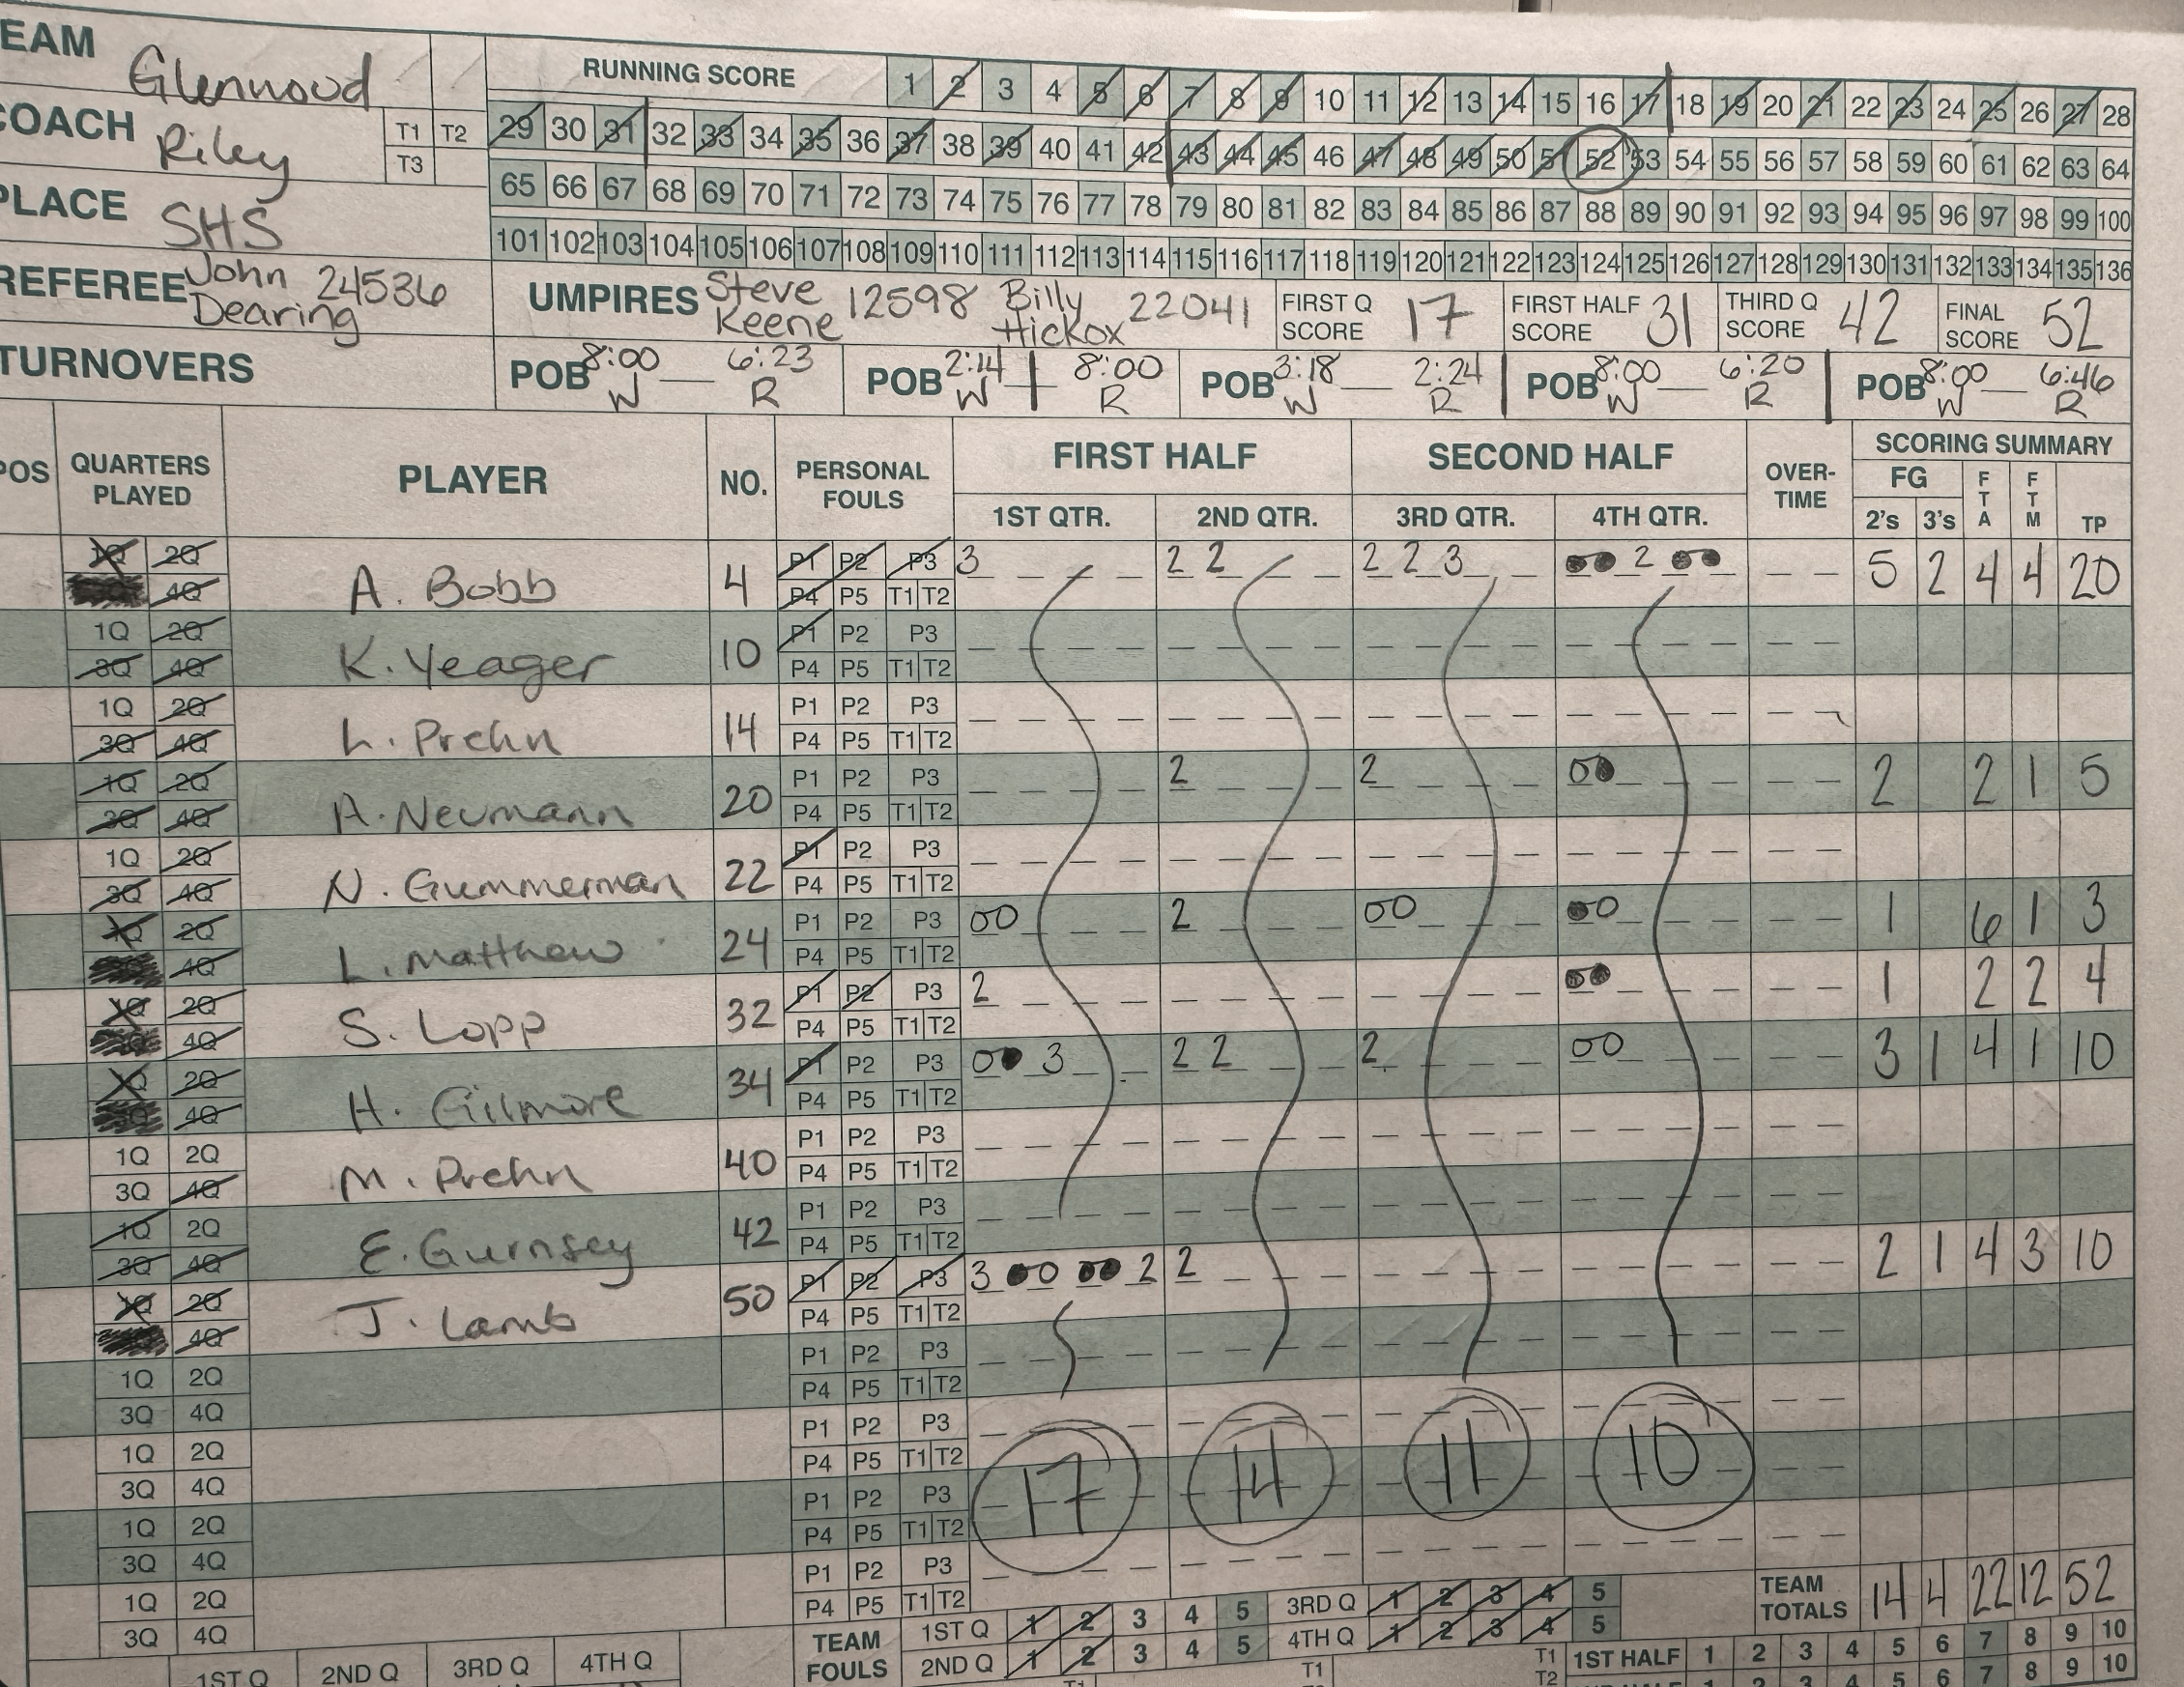 EAM Glenwood
RUNNING SCORE 1 2 3 4 5 6 7 8 9 10 11 12 13 14 15 16 17 18 19 20 21 22 23 24 25 26 27 28
COACH Riley T1 T2 T3
29 30 31 32 33 34 35 36 37 38 39 40 41 42 43 44 45 46 47 48 49 50 51 52 53 54 55 56 57 58 59 60 61 62 63 64
PLACE SHS
65 66 67 68 69 70 71 72 73 74 75 76 77 78 79 80 81 82 83 84 85 86 87 88 89 90 91 92 93 94 95 96 97 98 99 100
101 102 103 104 105 106 107 108 109 110 111 112 113 114 115 116 117 118 119 120 121 122 123 124 125 126 127 128 129 130 131 132 133 134 135 136
REFEREE John Dearing 24536
UMPIRES Steve Keene 12598 Billy Hickox 22041
FIRST Q SCORE 17 FIRST HALF SCORE 31 THIRD Q SCORE 42 FINAL SCORE 52
TURNOVERS
POB 8:00 W 6:23 R POB 2:14 W 8:00 R POB 3:18 W 2:24 R POB 8:00 W 6:20 R POB 8:00 W 6:46 R
POS QUARTERS PLAYED PLAYER NO. PERSONAL FOULS FIRST HALF SECOND HALF OVER-TIME SCORING SUMMARY
1ST QTR. 2ND QTR. 3RD QTR. 4TH QTR. FG 2's 3's FTA FTM TP
1Q 2Q 4Q A. Bobb 4 P1 P2 P3 P4 P5 T1 T2 3 2 2 2 2 3 2 5 2 4 4 20
1Q 2Q 3Q 4Q K. Yeager 10 P1 P2 P3 P4 P5 T1 T2
1Q 2Q 3Q 4Q L. Prehn 14 P1 P2 P3 P4 P5 T1 T2
1Q 2Q 3Q 4Q A. Neumann 20 P1 P2 P3 P4 P5 T1 T2 2 2 0 2 2 1 5
1Q 2Q 3Q 4Q N. Gummerman 22 P1 P2 P3 P4 P5 T1 T2
1Q 2Q 4Q L. Matthew 24 P1 P2 P3 P4 P5 T1 T2 00 2 00 0 1 6 1 3
1Q 2Q 4Q S. Lopp 32 P1 P2 P3 P4 P5 T1 T2 2 1 2 2 4
1Q 2Q 4Q H. Gilmore 34 P1 P2 P3 P4 P5 T1 T2 0 3 2 2 2 00 3 1 4 1 10
1Q 2Q 3Q 4Q M. Prehn 40 P1 P2 P3 P4 P5 T1 T2
1Q 2Q 3Q 4Q E. Gurnsey 42 P1 P2 P3 P4 P5 T1 T2
1Q 2Q 4Q J. Lamb 50 P1 P2 P3 P4 P5 T1 T2 3 0 2 2 2 1 4 3 10
1Q 2Q 3Q 4Q P1 P2 P3 P4 P5 T1 T2
1Q 2Q 3Q 4Q P1 P2 P3 P4 P5 T1 T2
1Q 2Q 3Q 4Q P1 P2 P3 P4 P5 T1 T2
1Q 2Q 3Q 4Q P1 P2 P3 P4 P5 T1 T2
17 14 11 10
TEAM TOTALS 14 4 22 12 52
TEAM FOULS 1ST Q 1 2 3 4 5 3RD Q 1 2 3 4 5
2ND Q 1 2 3 4 5 4TH Q 1 2 3 4 5
1ST Q 2ND Q 3RD Q 4TH Q
T1 T1 T1 T2 1ST HALF 1 2 3 4 5 6 7 8 9 10
1 2 3 4 5 6 7 8 9 10